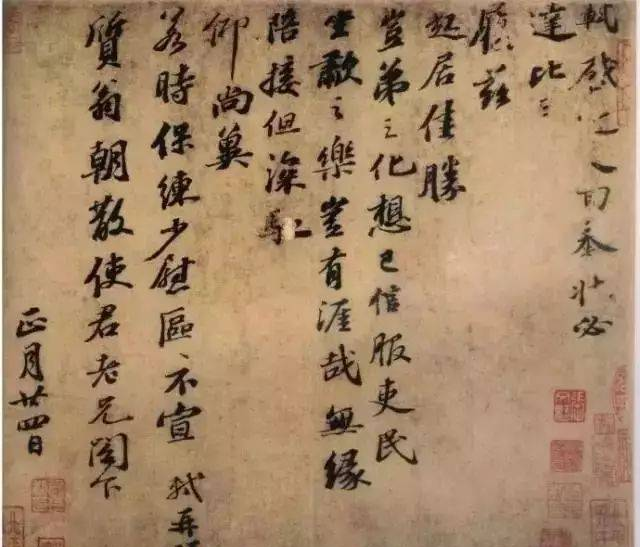 軾啓近人回奉狀必
達比
履茲
起居佳勝
豈弟之化想已信服吏民
坐歗之樂豈有涯哉無緣
陪接但深馳
仰尚冀
若時保練少慰區〻不宣 軾再
質翁朝散使君老兄閣下
正月廿四日